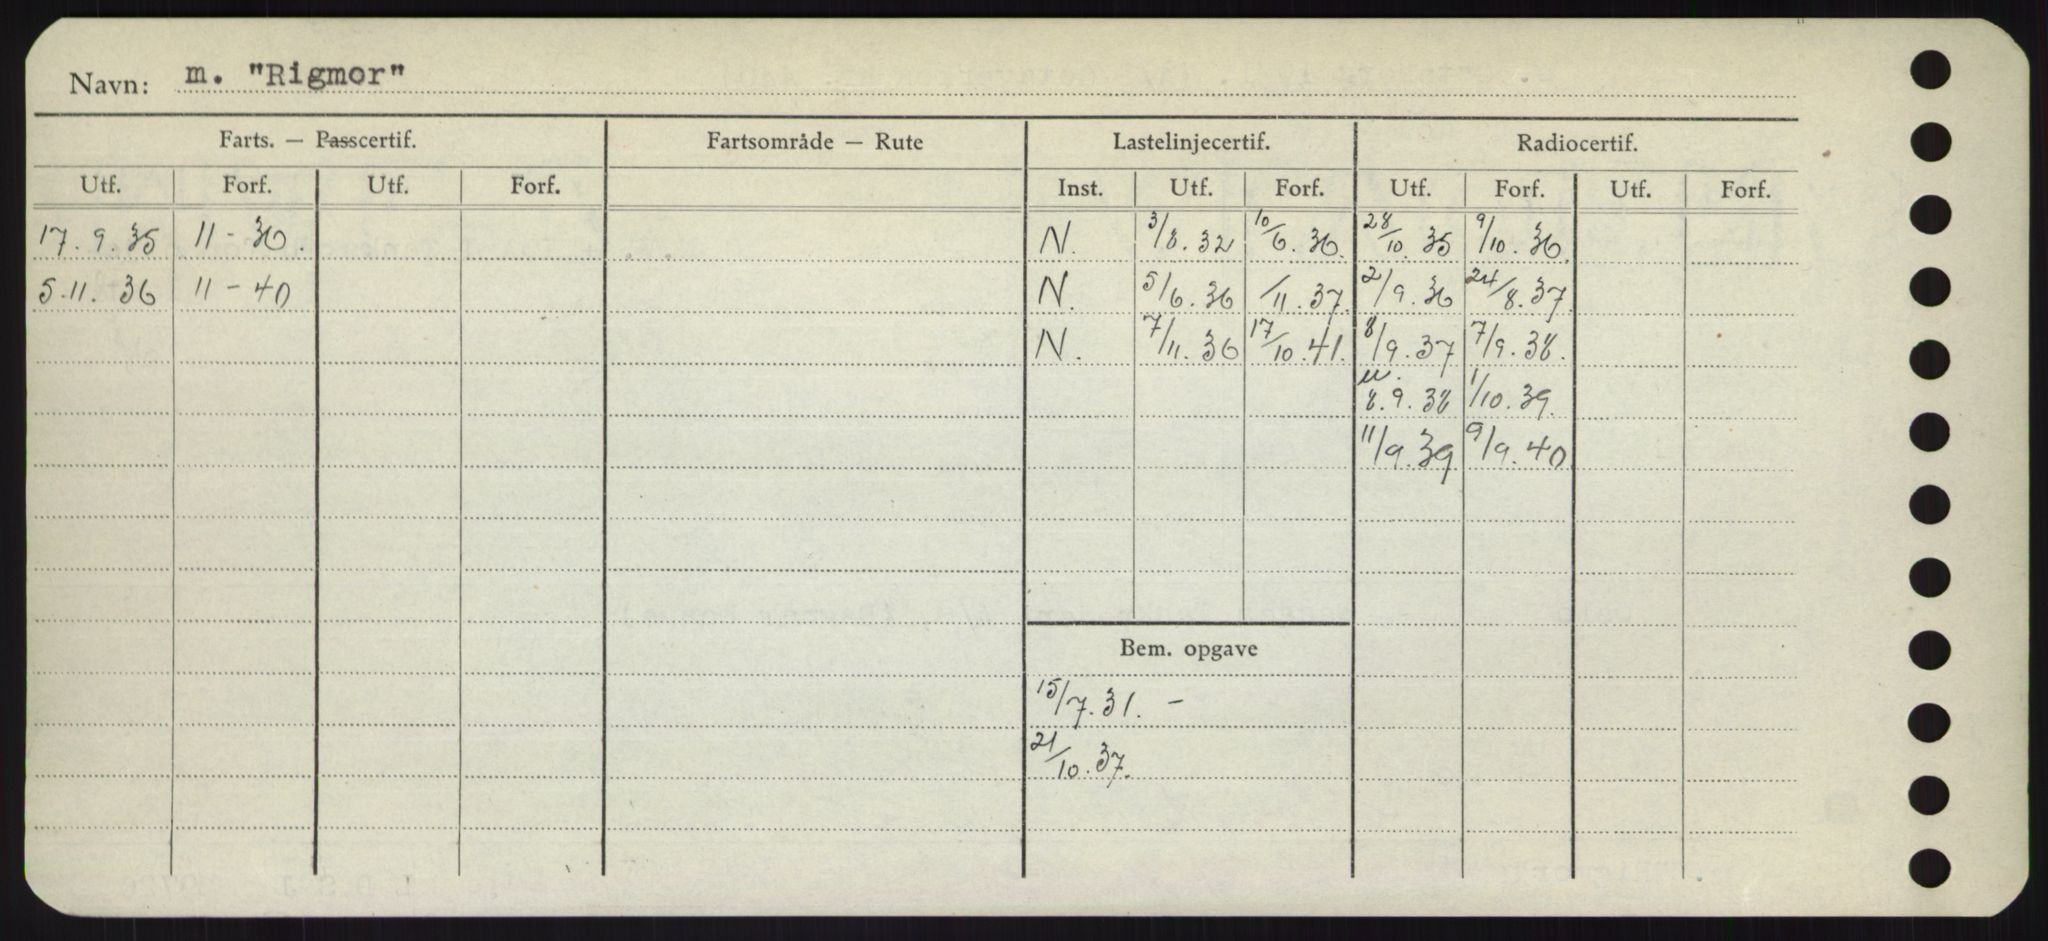 Navn: m. "Rigmor"
Farts. — Passcertif. Fartsområde — Rute Lastelinjecertif. Radiocertif.
Utf. Forf. Utf. Forf. Inst. Utf. Forf. Utf. Forf. Utf. Forf.
17.9.35 11-36. N. 3/8.32 10/6.36. 28/10.35 9/10.36.
5.11.36 11-40 N. 5/6.36 /11.37. 2/9.36 24/8.37.
N. 7/11.36 17/10.41. 8/9.37 7/9.38.
8.9.38 1/10.39.
11/9.39 9/9.40
Bem. opgave
15/7.31. -
21/10.37.